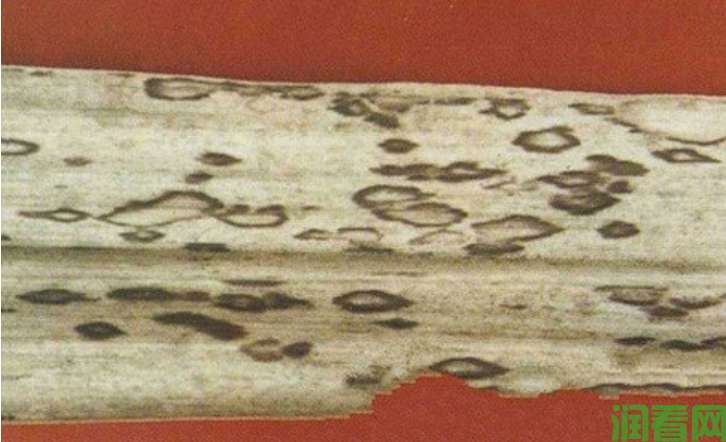 润看网